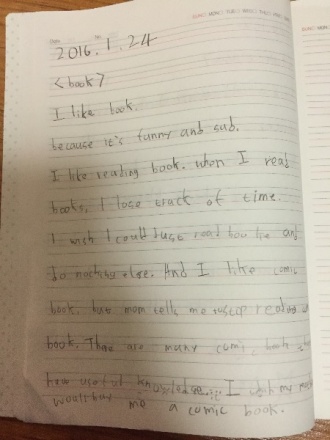 2016. 1. 24
<book>
I like book.
because it's funny and sad.
I like reading book. when I read
books, I lose track of time.
I wish I could read and
do nothing else. And I like comic
book, but mom tells me stop reading
book. There are many comic book
have useful knowledge. I wish my
would buy me a comic book.